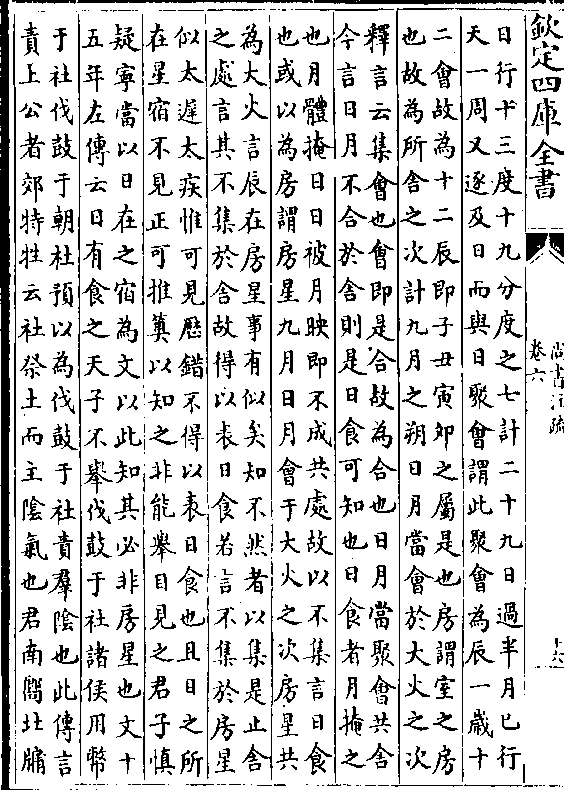 欽定四庫全書
尚書注疏
卷六
十六
日行十三度十九分度之七計二十九日過半月已行
天一周又逐及日而與日聚會謂此聚會為辰一歲十
二會故為十二辰即子丑寅夘之屬是也房謂室之房
也故為所舍之次計九月之朔日月當會於大火之次
釋言云集會也會即是合故為合也日月當聚會共舍
今言日月不合於舍則是日食可知也日食者月掩之
也月體掩日日被月映即不成共處故以不集言日食
也或以為房謂房星九月日月會于大火之次房星共
為大火言辰在房星事有似矣知不然者以集是止舍
之處言其不集於舍故得以表日食若言不集於房星
似太遲太疾惟可見厯錯不得以表日食也且日之所
在星宿不見正可推算以知之非能舉目見之君子慎
疑寧當以日在之宿為文以此知其必非房星也文十
五年左傳云日有食之天子不舉伐鼓于社諸侯用幣
于社伐鼓于朝社預以為伐鼓于社責羣陰也此傳言
責上公者郊特牲云社祭土而主陰氣也君南嚮北牖